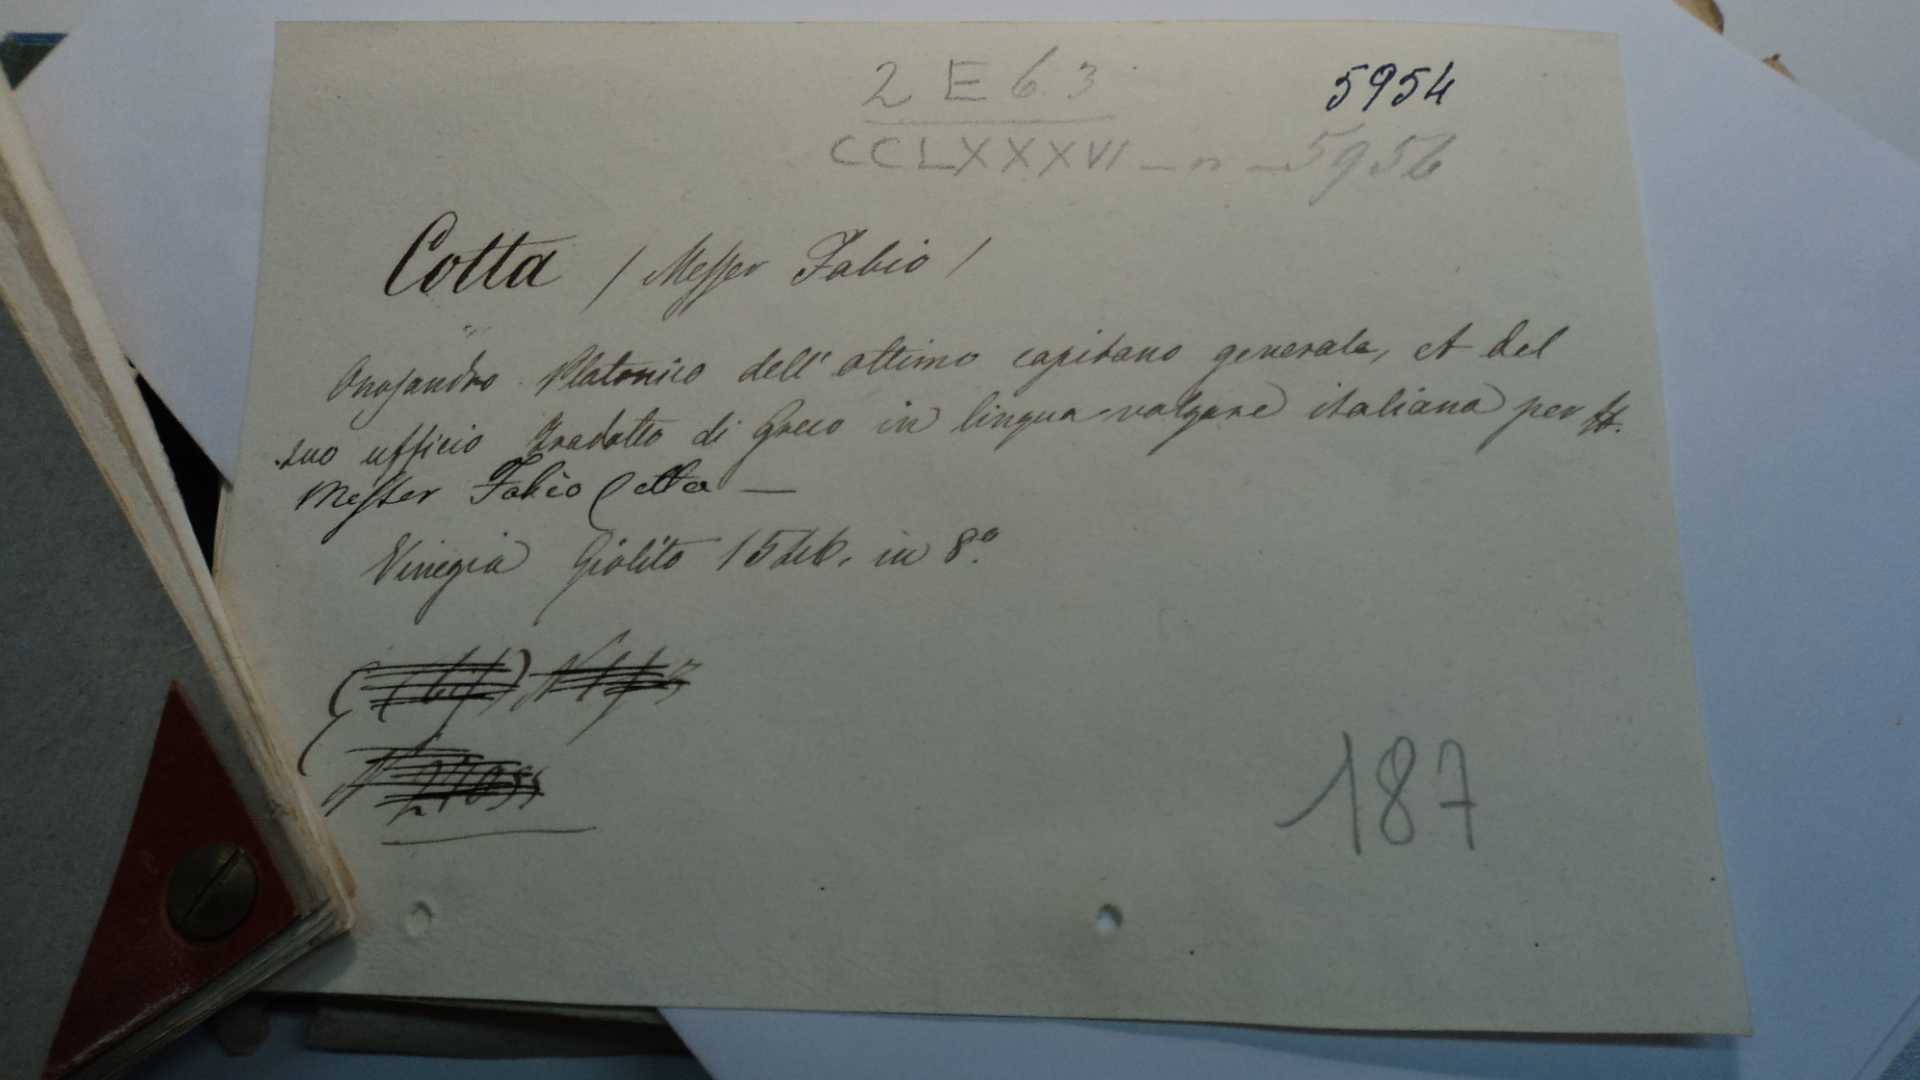 2 E 6.3
5954
CCLXXXVI - n - 5956
Cotta / Messer Fabio /
Onosandro Platonico dell' ottimo capitano generale, et del
suo ufficio Tradotto di Greco in lingua volgare italiana per
Messer Fabio Cotta —
Vinegia Giolito 1546. in 8º.
187